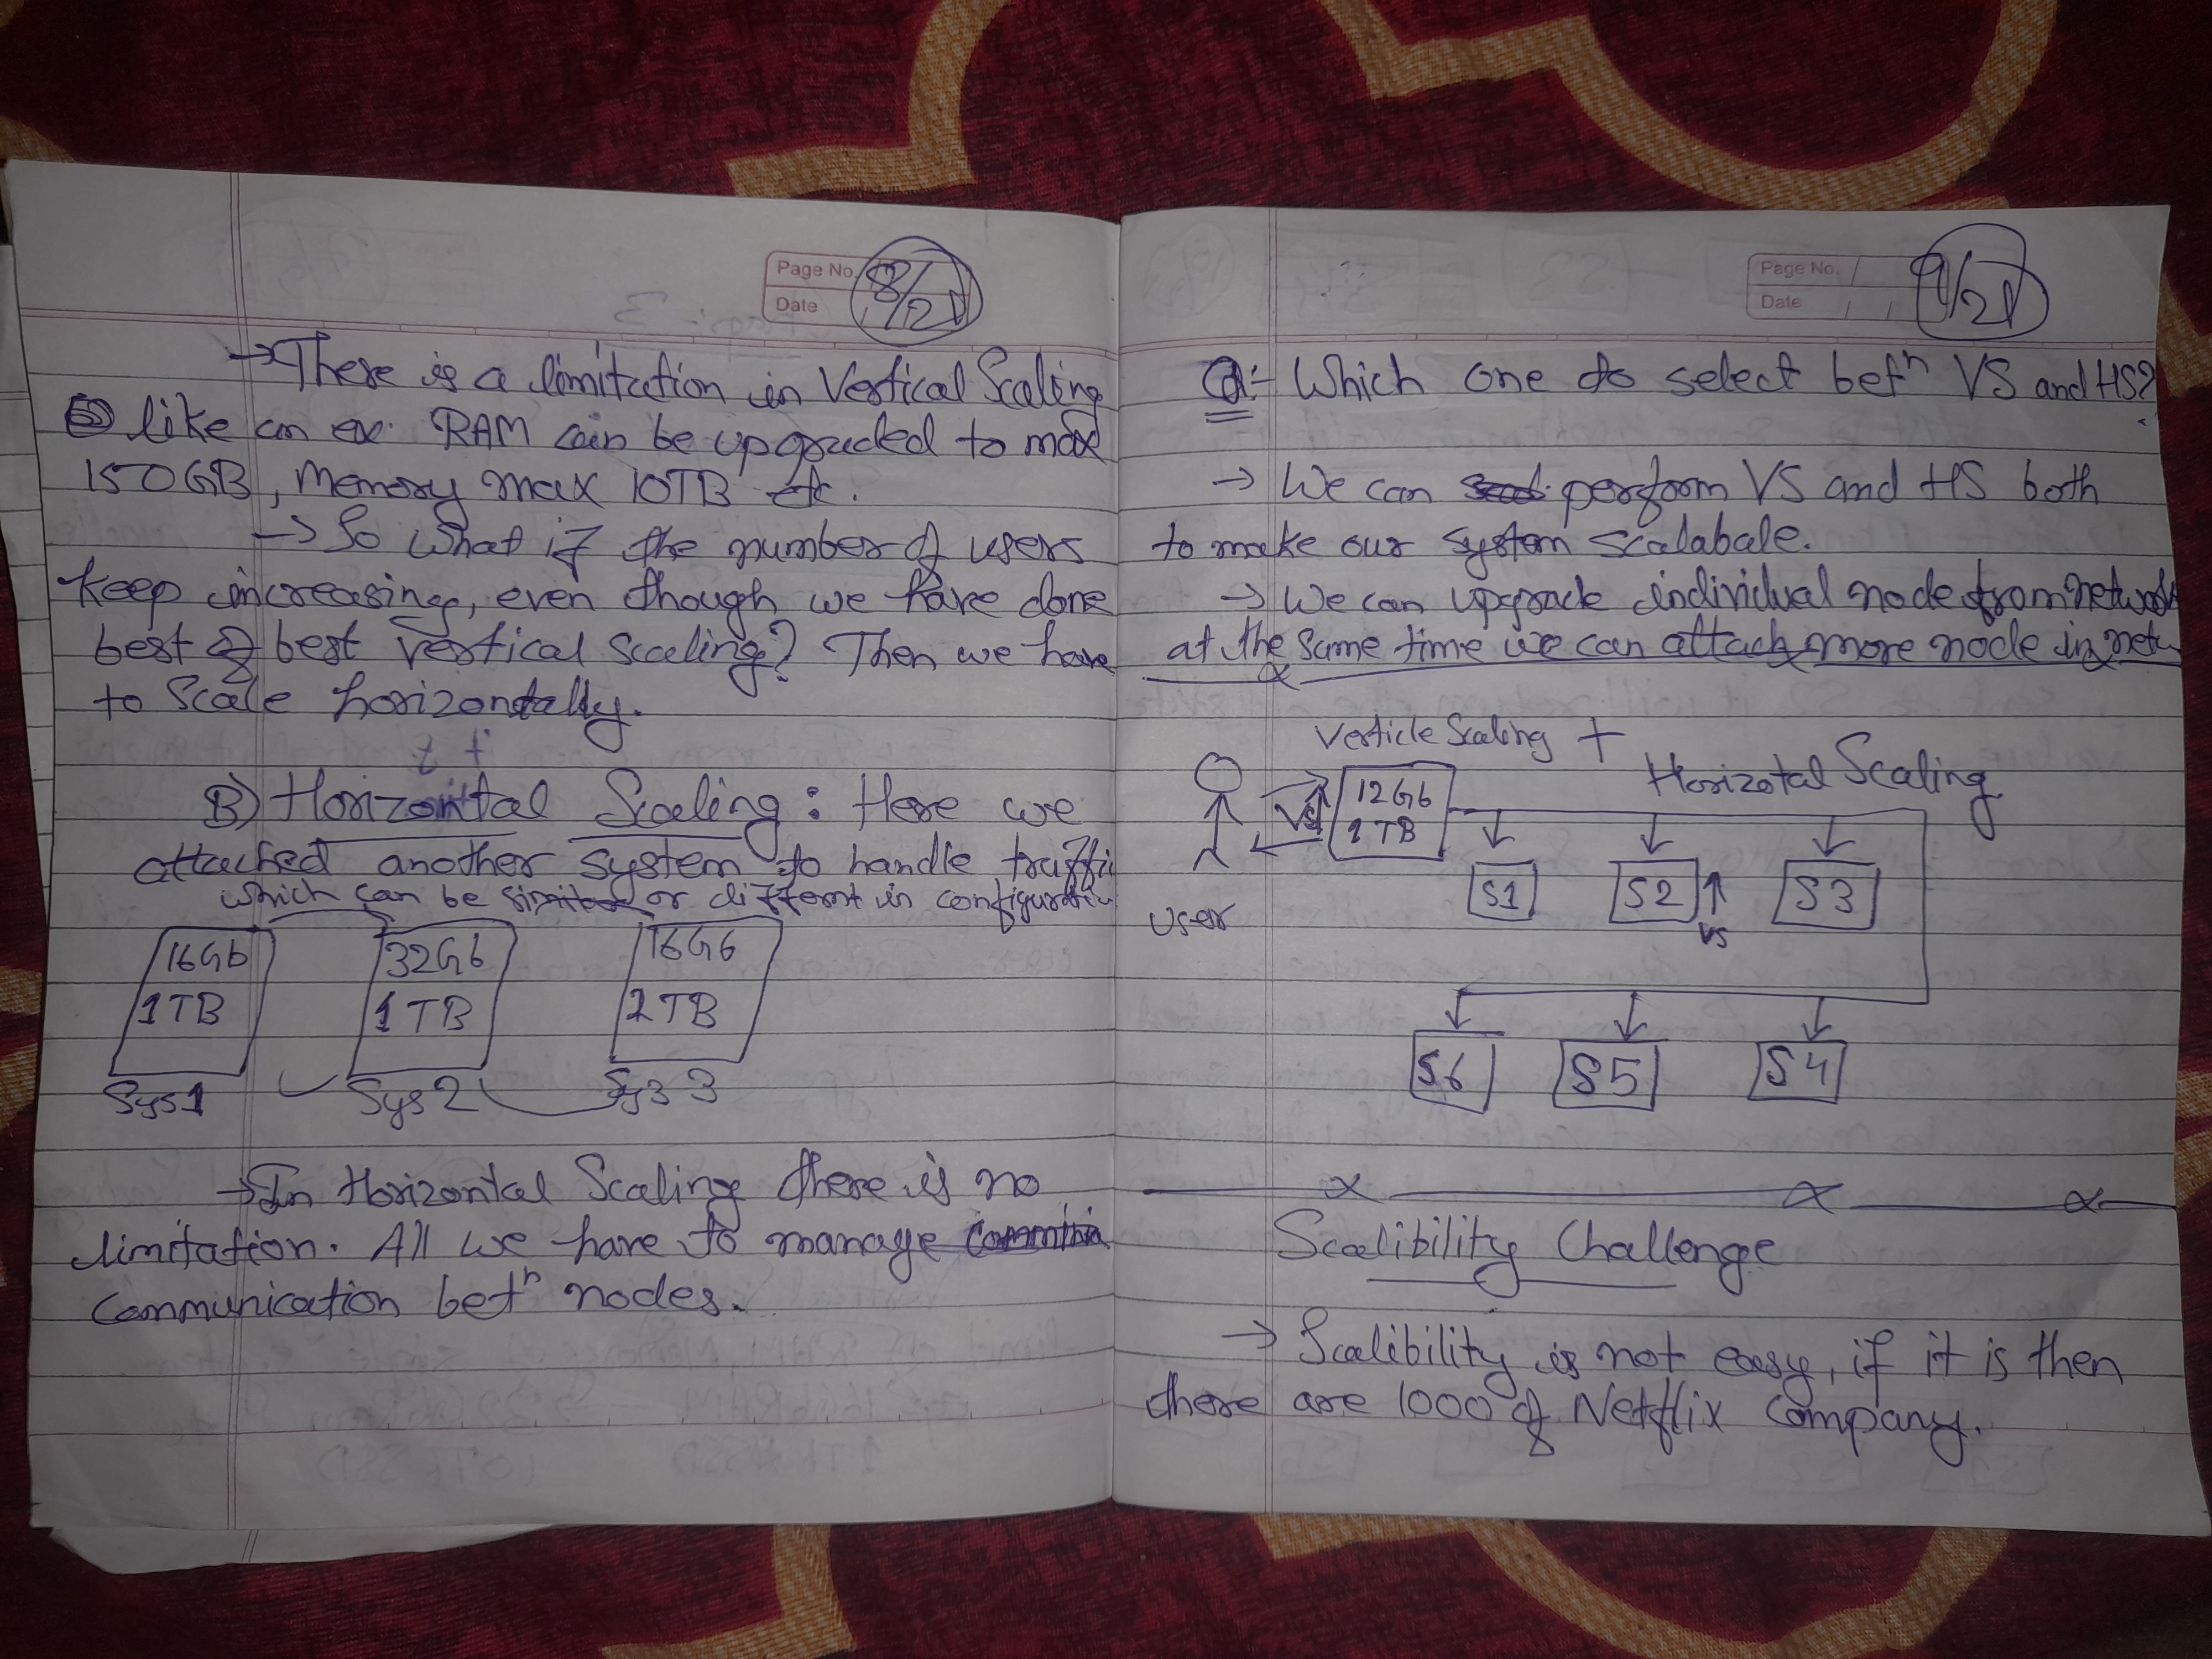 Page No.
Date
8/21
→ There is a limitation in Vertical Scaling
like an ex. RAM can be upgraded to max
150GB, memory max 10TB etc.
→ So what if the number of users
keep increasing, even though we have done
best of best Vertical scaling? Then we have
to Scale horizontally.
B) Horizontal Scaling : Here we
attached another system to handle traffic
which can be similar or different in configuration
16Gb
1TB
Sys1
32Gb
1TB
Sys2
16Gb
2TB
Sys3
→ In Horizontal Scaling there is no
limitation. All we have to manage
communication betn nodes.
Page No.
Date
9/21
Q:- Which one do select betn VS and HS?
→ We can perform VS and HS both
to make our system scalabale.
→ We can upgrade individual node from network
at the same time we can attach more node in netw
x
Verticle Scaling + Horizotal Scaling
user
VS
12Gb
1TB
S1
S2
VS
S3
S6
S5
S4
x x x
Scalibility Challenge
→ Scalibility is not easy, if it is then
there are 100 of Netflix company.